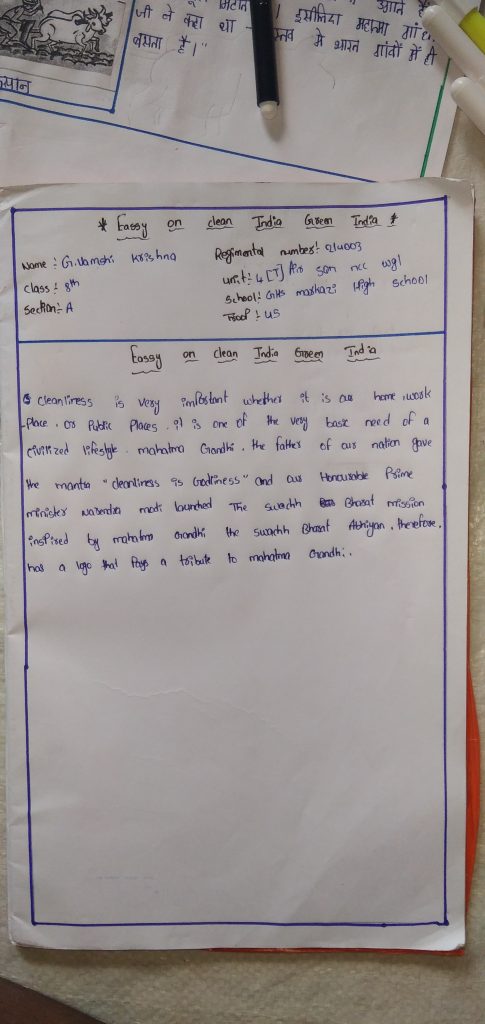 जी ने कहा था
इसलिए महात्मा गांधी
बसता है।"
में भारत गांवों में ही
* Eassy on clean India Green India *
Name :- G.Vamshi Krishna
Regimental number:
class :- 8th
unit:- 4 [T] Air sqn ncc wgl
section:- A
School:- GHS markazi High school
Troof :- US
Eassy on clean India Green India
cleanliness is very important whether it is our home, work
-place, or Public Places. it is one of the very basic need of a
civilized lifestyle. mahatma Gandhi, the father of our nation gave
the mantra "cleanliness is Godliness" and our Honourable Prime
minister Narendra modi launched The swachh Bharat mission
inspired by mahatma Gandhi the swachh Bharat Abhiyan, therefore,
has a logo that Pays a tribute to mahatma Gandhi.